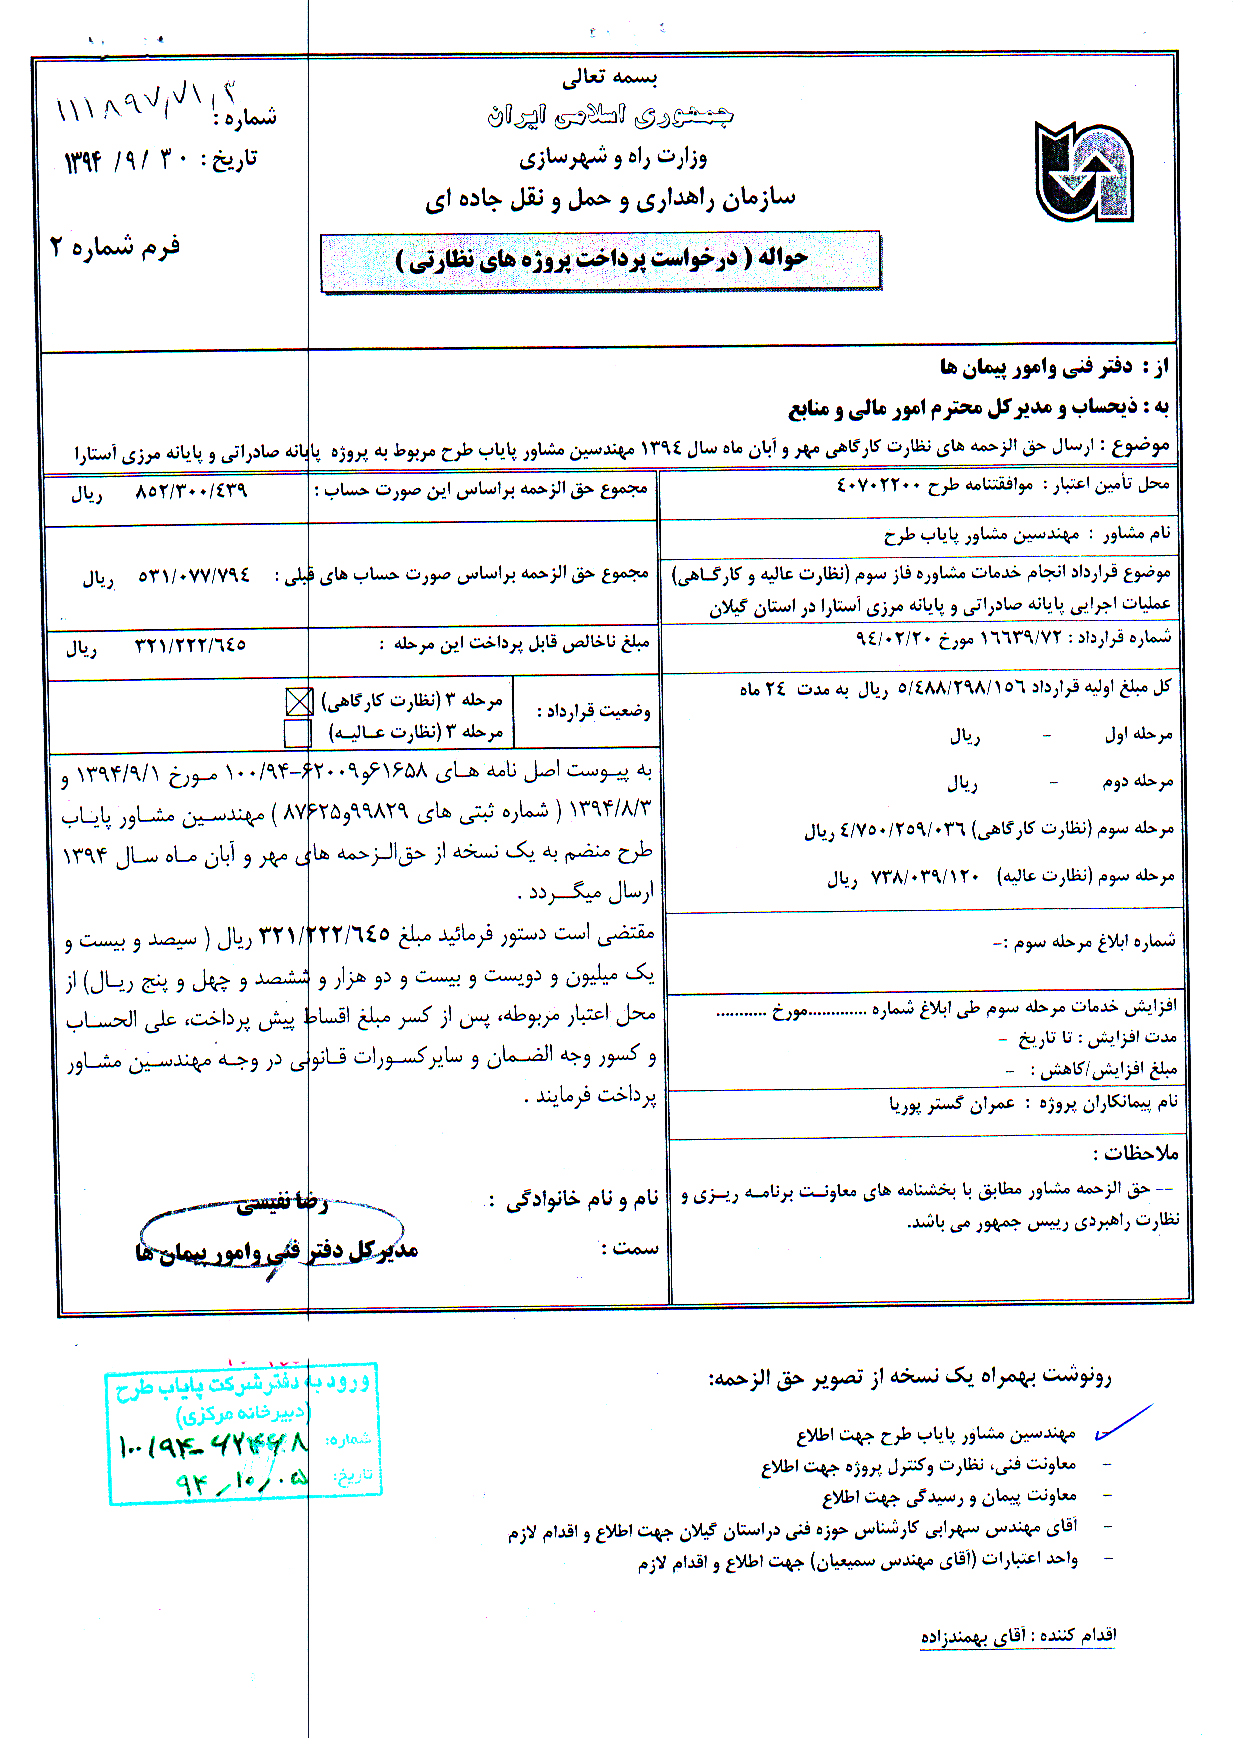 بسمه تعالی
جمهوری اسلامی ایران
وزارت راه و شهرسازی
سازمان راهداری و حمل و نقل جاده ای
شماره : ۱۱۱۸۹۷/۷۱/۳
تاریخ : ۱۳۹۴/۹/۳۰
فرم شماره ۲
حواله ( درخواست پرداخت پروژه های نظارتی )
از : دفتر فنی وامور پیمان ها
به : ذیحساب و مدیرکل محترم امور مالی و منابع
موضوع : ارسال حق الزحمه های نظارت کارگاهی مهر و آبان ماه سال ۱۳۹٤ مهندسین مشاور پایاب طرح مربوط به پروژه پایانه صادراتی و پایانه مرزی آستارا
محل تأمین اعتبار : موافقتنامه طرح ٤۰۷۰۲۲۰۰
نام مشاور : مهندسین مشاور پایاب طرح
موضوع قرارداد انجام خدمات مشاوره فاز سوم (نظارت عالیه و کارگاهی)
عملیات اجرایی پایانه صادراتی و پایانه مرزی آستارا در استان گیلان
شماره قرارداد : ۱٦٦۳۹/۷۲ مورخ ۹٤/۰۲/۲۰
کل مبلغ اولیه قرارداد ۵/٤۸۸/۲۹۸/۱۵٦ ریال به مدت ۲٤ ماه
مرحله اول - ریال
مرحله دوم - ریال
مرحله سوم (نظارت کارگاهی) ٤/۷۵۰/۲۵۹/۰۳٦ ریال
مرحله سوم (نظارت عالیه) ۷۳۸/۰۳۹/۱۲۰ ریال
شماره ابلاغ مرحله سوم :-
افزایش خدمات مرحله سوم طی ابلاغ شماره .............مورخ ...........
مدت افزایش : تا تاریخ -
مبلغ افزایش/کاهش : -
نام پیمانکاران پروژه : عمران گستر پوریا
ملاحظات :
-- حق الزحمه مشاور مطابق با بخشنامه های معاونت برنامه ریزی و
نظارت راهبردی رییس جمهور می باشد.
مجموع حق الزحمه براساس این صورت حساب : ۸۵۲/۳۰۰/٤۳۹ ریال
مجموع حق الزحمه براساس صورت حساب های قبلی : ۵۳۱/۰۷۷/۷۹٤ ریال
مبلغ ناخالص قابل پرداخت این مرحله : ۳۲۱/۲۲۲/٦٤۵ ریال
وضعیت قرارداد :
مرحله ۳ (نظارت کارگاهی)
مرحله ۳ (نظارت عالیه)
به پیوست اصل نامه های ۶۱۶۵۸و۶۲۰۰۹-۱۰۰/۹۴ مورخ ۱۳۹۴/۹/۱ و
۱۳۹۴/۸/۳ ( شماره ثبتی های ۹۹۸۲۹و۸۷۶۲۵ ) مهندسین مشاور پایاب
طرح منضم به یک نسخه از حق‌الزحمه های مهر و آبان ماه سال ۱۳۹۴
ارسال میگردد .
مقتضی است دستور فرمائید مبلغ ۳۲۱/۲۲۲/٦٤۵ ریال ( سیصد و بیست و
یک میلیون و دویست و بیست و دو هزار و ششصد و چهل و پنج ریال) از
محل اعتبار مربوطه، پس از کسر مبلغ اقساط پیش پرداخت، علی الحساب
و کسور وجه الضمان و سایرکسورات قانونی در وجه مهندسین مشاور
پرداخت فرمایند .
نام و نام خانوادگی : رضا نفیسی
سمت : مدیرکل دفتر فنی وامور پیمان ها
رونوشت بهمراه یک نسخه از تصویر حق الزحمه:
- مهندسین مشاور پایاب طرح جهت اطلاع
- معاونت فنی، نظارت وکنترل پروژه جهت اطلاع
- معاونت پیمان و رسیدگی جهت اطلاع
- آقای مهندس سهرابی کارشناس حوزه فنی دراستان گیلان جهت اطلاع و اقدام لازم
- واحد اعتبارات (آقای مهندس سمیعیان) جهت اطلاع و اقدام لازم
اقدام کننده : آقای بهمندزاده
ورود به دفتر شرکت پایاب طرح
(دبیرخانه مرکزی)
شماره: ۱۰۰/۹۴-۶۲۴۶۸
تاریخ: ۹۴/۱۰/۰۵